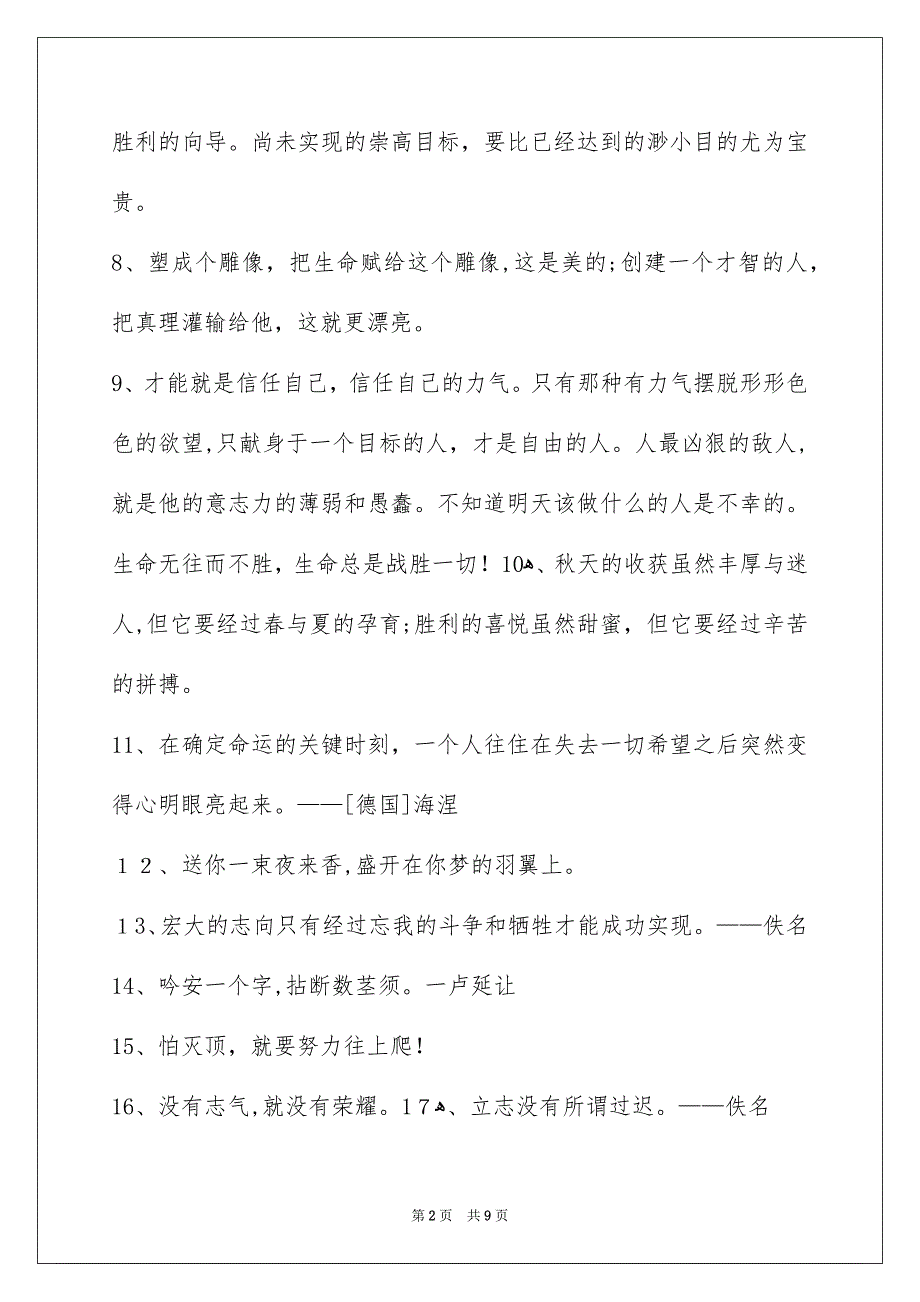 胜利的向导。尚未实现的崇高目标，要比已经达到的渺小目的尤为宝
贵。
8、塑成个雕像，把生命赋给这个雕像,这是美的;创建一个才智的人，
把真理灌输给他，这就更漂亮。
9、才能就是信任自己，信任自己的力气。只有那种有力气摆脱形形色
色的欲望,只献身于一个目标的人，才是自由的人。人最凶狠的敌人,
就是他的意志力的薄弱和愚蠢。不知道明天该做什么的人是不幸的。
生命无往而不胜，生命总是战胜一切！10ﻫ、秋天的收获虽然丰厚与迷
人,但它要经过春与夏的孕育;胜利的喜悦虽然甜蜜，但它要经过辛苦
的拼搏。
11、在确定命运的关键时刻，一个人往住在失去一切希望之后突然变
得心明眼亮起来。——[德国]海涅
１２、送你一束夜来香,盛开在你梦的羽翼上。
１3、宏大的志向只有经过忘我的斗争和牺牲才能成功实现。——佚名
14、吟安一个字,拈断数茎须。一卢延让
15、怕灭顶，就要努力往上爬！
16、没有志气,就没有荣耀。1７ﻫ、立志没有所谓过迟。——佚名
第2页 共9页